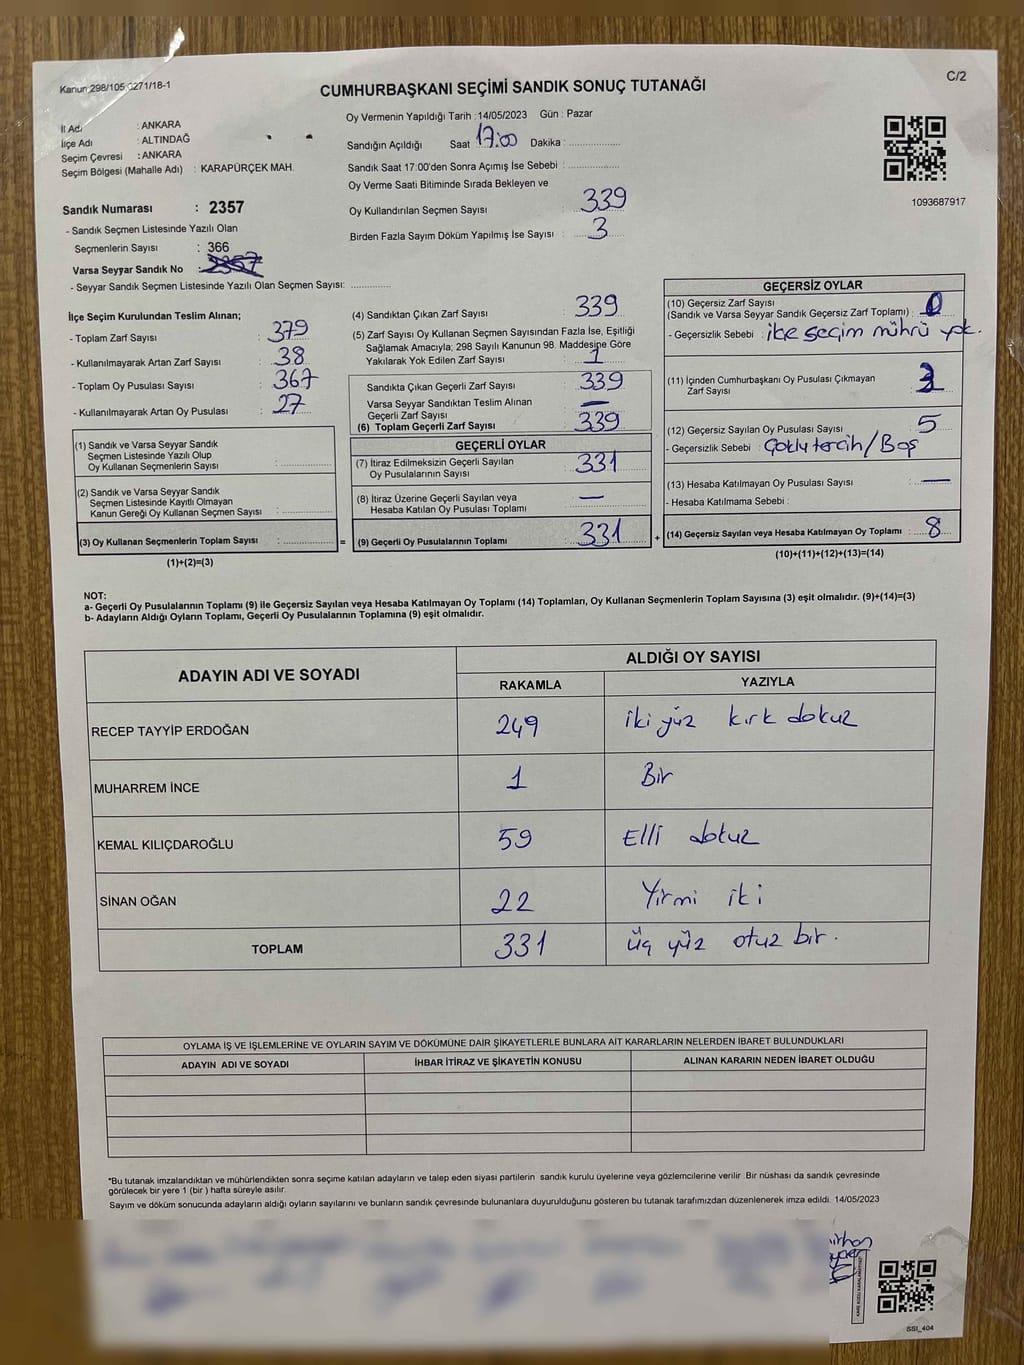 Kanun 298/105,0271/18-1
C/2
CUMHURBAŞKANI SEÇİMİ SANDIK SONUÇ TUTANAĞI
İl Adı : ANKARA
İlçe Adı : ALTINDAĞ
Seçim Çevresi : ANKARA
Seçim Bölgesi (Mahalle Adı) : KARAPÜRÇEK MAH.
Sandık Numarası : 2357
- Sandık Seçmen Listesinde Yazılı Olan
Seçmenlerin Sayısı : 366
Varsa Seyyar Sandık No : 2357
- Seyyar Sandık Seçmen Listesinde Yazılı Olan Seçmen Sayısı:
Oy Vermenin Yapıldığı Tarih :14/05/2023 Gün : Pazar
Sandığın Açıldığı Saat 17:00 Dakika :
Sandık Saat 17:00'den Sonra Açımış İse Sebebi :
Oy Verme Saati Bitiminde Sırada Bekleyen ve
Oy Kullandırılan Seçmen Sayısı : 339
Birden Fazla Sayım Döküm Yapılmış İse Sayısı : 3
1093687917
İlçe Seçim Kurulundan Teslim Alınan;
- Toplam Zarf Sayısı : 379
- Kullanılmayarak Artan Zarf Sayısı : 38
- Toplam Oy Pusulası Sayısı : 367
- Kullanılmayarak Artan Oy Pusulası : 27
(1) Sandık ve Varsa Seyyar Sandık
Seçmen Listesinde Yazılı Olup
Oy Kullanan Seçmenlerin Sayısı :
(2) Sandık ve Varsa Seyyar Sandık
Seçmen Listesinde Kayıtlı Olmayan
Kanun Gereği Oy Kullanan Seçmen Sayısı :
(3) Oy Kullanan Seçmenlerin Toplam Sayısı : =
(1)+(2)=(3)
(4) Sandıktan Çıkan Zarf Sayısı : 339
(5) Zarf Sayısı Oy Kullanan Seçmen Sayısından Fazla İse, Eşitliği
Sağlamak Amacıyla; 298 Sayılı Kanunun 98. Maddesine Göre
Yakılarak Yok Edilen Zarf Sayısı : 1
Sandıkta Çıkan Geçerli Zarf Sayısı : 339
Varsa Seyyar Sandıktan Teslim Alınan
Geçerli Zarf Sayısı : —
(6) Toplam Geçerli Zarf Sayısı : 339
GEÇERLİ OYLAR
(7) İtiraz Edilmeksizin Geçerli Sayılan
Oy Pusulalarının Sayısı : 331
(8) İtiraz Üzerine Geçerli Sayılan veya
Hesaba Katılan Oy Pusulası Toplamı : —
(9) Geçerli Oy Pusulalarının Toplamı : 331 +
GEÇERSİZ OYLAR
(10) Geçersiz Zarf Sayısı
(Sandık ve Varsa Seyyar Sandık Geçersiz Zarf Toplamı) : 0
- Geçersizlik Sebebi : ilçe seçim mührü yok.
(11) İçinden Cumhurbaşkanı Oy Pusulası Çıkmayan
Zarf Sayısı : 3
(12) Geçersiz Sayılan Oy Pusulası Sayısı : 5
- Geçersizlik Sebebi : Çoklu tercih/Boş
(13) Hesaba Katılmayan Oy Pusulası Sayısı : —
- Hesaba Katılmama Sebebi :
(14) Geçersiz Sayılan veya Hesaba Katılmayan Oy Toplamı : 8
(10)+(11)+(12)+(13)=(14)
NOT:
a- Geçerli Oy Pusulalarının Toplamı (9) ile Geçersiz Sayılan veya Hesaba Katılmayan Oy Toplamı (14) Toplamları, Oy Kullanan Seçmenlerin Toplam Sayısına (3) eşit olmalıdır. (9)+(14)=(3)
b- Adayların Aldığı Oyların Toplamı, Geçerli Oy Pusulalarının Toplamına (9) eşit olmalıdır.
ADAYIN ADI VE SOYADI ALDIĞI OY SAYISI
RAKAMLA YAZIYLA
RECEP TAYYİP ERDOĞAN 249 iki yüz kırk dokuz
MUHARREM İNCE 1 Bir
KEMAL KILIÇDAROĞLU 59 Elli dokuz
SİNAN OĞAN 22 Yirmi iki
TOPLAM 331 üç yüz otuz bir.
OYLAMA İŞ VE İŞLEMLERİNE VE OYLARIN SAYIM VE DÖKÜMÜNE DAİR ŞİKAYETLERLE BUNLARA AİT KARARLARIN NELERDEN İBARET BULUNDUKLARI
ADAYIN ADI VE SOYADI İHBAR İTİRAZ VE ŞİKAYETİN KONUSU ALINAN KARARIN NEDEN İBARET OLDUĞU
*Bu tutanak imzalandıktan ve mühürlendikten sonra seçime katılan adayların ve talep eden siyasi partilerin sandık kurulu üyelerine veya gözlemcilerine verilir. Bir nüshası da sandık çevresinde
görülecek bir yere 1 (bir ) hafta süreyle asılır.
Sayım ve döküm sonucunda adayların aldığı oyların sayılarını ve bunların sandık çevresinde bulunanlara duyurulduğunu gösteren bu tutanak tarafımızdan düzenlenerek imza edildi. 14/05/2023
SSI_404